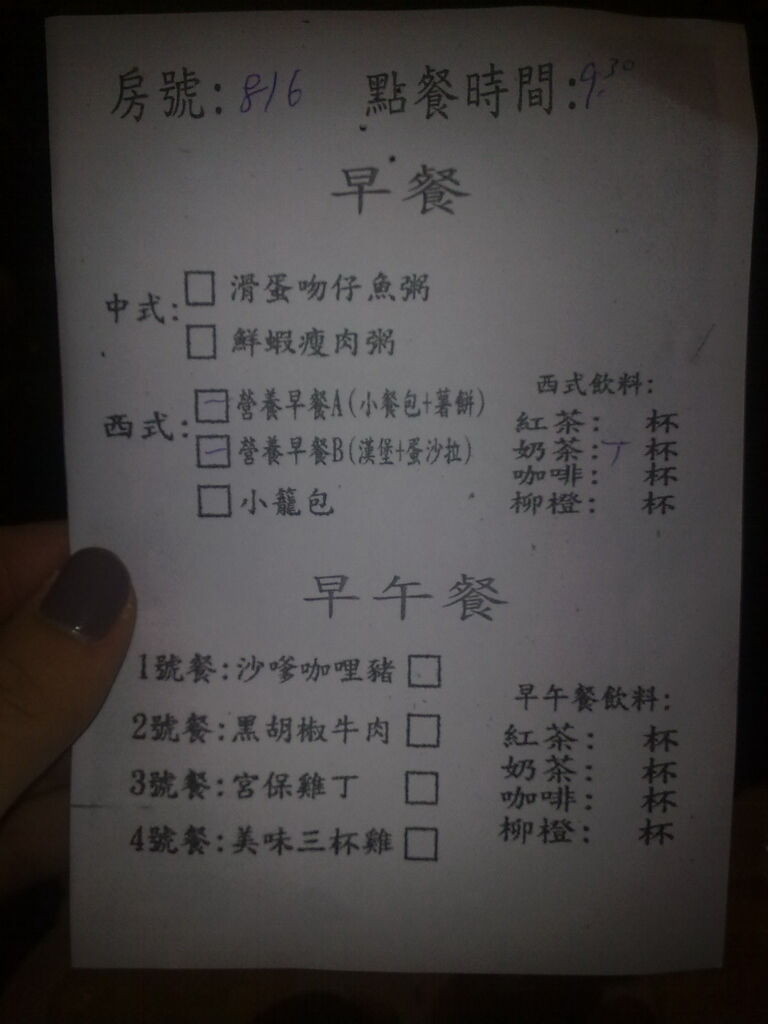 房號: 816 點餐時間: 9:30
早餐
中式: □ 滑蛋吻仔魚粥
□ 鮮蝦瘦肉粥
西式: 一 營養早餐A(小餐包+薯餅)
一 營養早餐B(漢堡+蛋沙拉)
□ 小籠包
西式飲料:
紅茶: 杯
奶茶: 丁 杯
咖啡: 杯
柳橙: 杯
早午餐
1號餐:沙嗲咖哩豬 □
2號餐:黑胡椒牛肉 □
3號餐:宮保雞丁 □
4號餐:美味三杯雞 □
早午餐飲料:
紅茶: 杯
奶茶: 杯
咖啡: 杯
柳橙: 杯